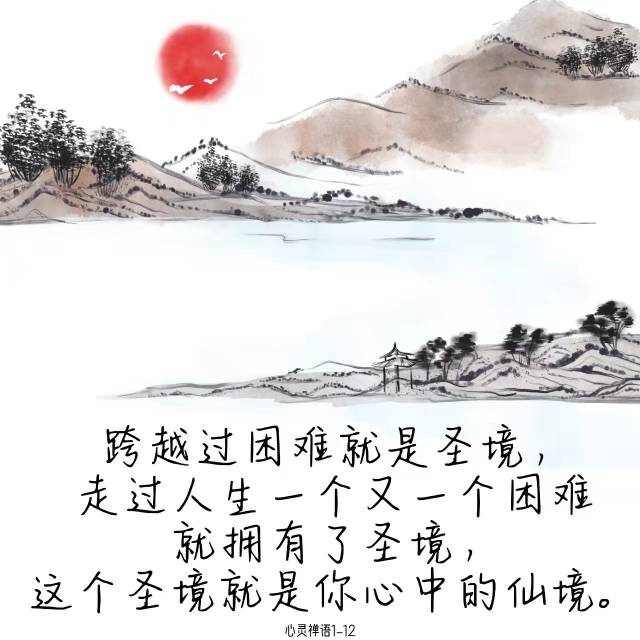 跨越过困难就是圣境，
走过人生一个又一个困难
就拥有了圣境，
这个圣境就是你心中的仙境。
心灵禅语1-12